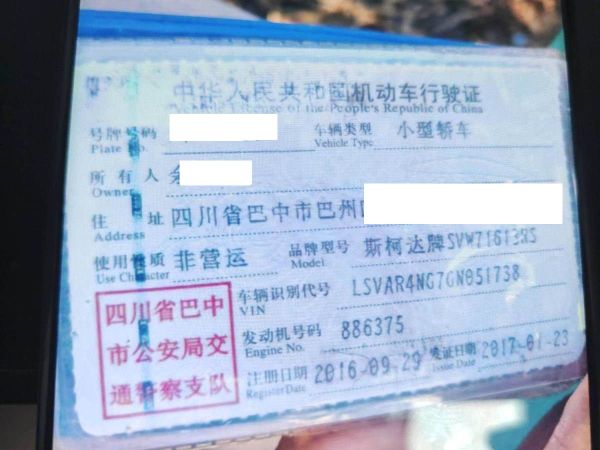 中华人民共和国机动车行驶证
Vehicle License of the People's Republic of China
号牌号码 车辆类型 小型轿车
Plate No. Vehicle Type
所有人
Owner
住址 四川省巴中市巴州
Address
使用性质 非营运 品牌型号 斯柯达牌SVW71613RS
Use Character Model
四川省巴中 车辆识别代号 LSVAR4NG7GN051738
VIN
市公安局交 发动机号码 886375
Engine No.
通警察支队 注册日期 2016-09-29 发证日期 2017-01-23
Register Date Issue Date